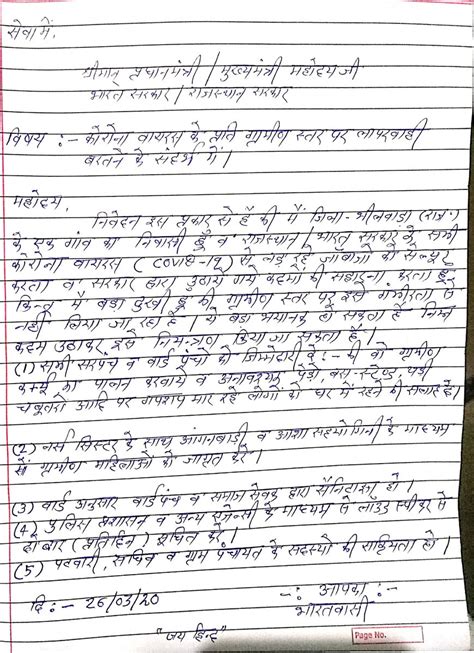 सेवा में,
श्रीमान् प्रधानमंत्री / मुख्यमंत्री महोदय जी
भारत सरकार / राजस्थान सरकार
विषय :- कोरोना वायरस के प्रति ग्रामीण स्तर पर लापरवाही
बरतने के संदर्भ में।
महोदय,
निवेदन इस प्रकार से है की मैं जिला - भीलवाडा (राज॰)
के एक गांव का निवासी हूं व राजस्थान / भारत सरकार के सभी
कोरोना वायरस (COVID-19) से लड़ रहे जाबाजों को सल्यूट
करता व सरकार द्वारा उठाये गये कदमों की सहारना करता हूं
किन्तु में बडा दुखी हूं की ग्रामीण स्तर पर इसे गंभीरता से
नहीं लिया जा रहा है। ये बडा भयानक हो सकता है निम्न
कदम उठाकर इसे नियन्त्रण किया जा सकता है।
(1) सभी सरपंच व वार्ड पंचो को जिम्मेदारी दे :- की वो ग्रामीण
कर्फ्यू का पालन करवाये व अनावश्यक पेडो, बस-स्टेण्ड,
चबूतरो आदि पर गपशप मार रहे लोगों को घर में रहने की सलाह दे।
(2) नर्स सिस्टर के साथ आंगनबाडी व आशा सहयोगिनी के माध्यम
से ग्रामीण महिलाओं को जागृत करे।
(3) वार्ड अनुसार वार्डपंच व समाज सेवक द्वारा सैनिटाइज हो।
(4) पुलिस प्रशासन व अन्य एजेन्सी के माध्यम से लाउड स्पीकर से
दो बार (प्रतिदिन) सूचित करे।
(5) पटवारी, सचिव व ग्राम पंचायत के सदस्यो की सक्रियता हो।
दि :- 26/03/20
-: आपका :-
भारतवासी
"जय हिन्द"
Page No.